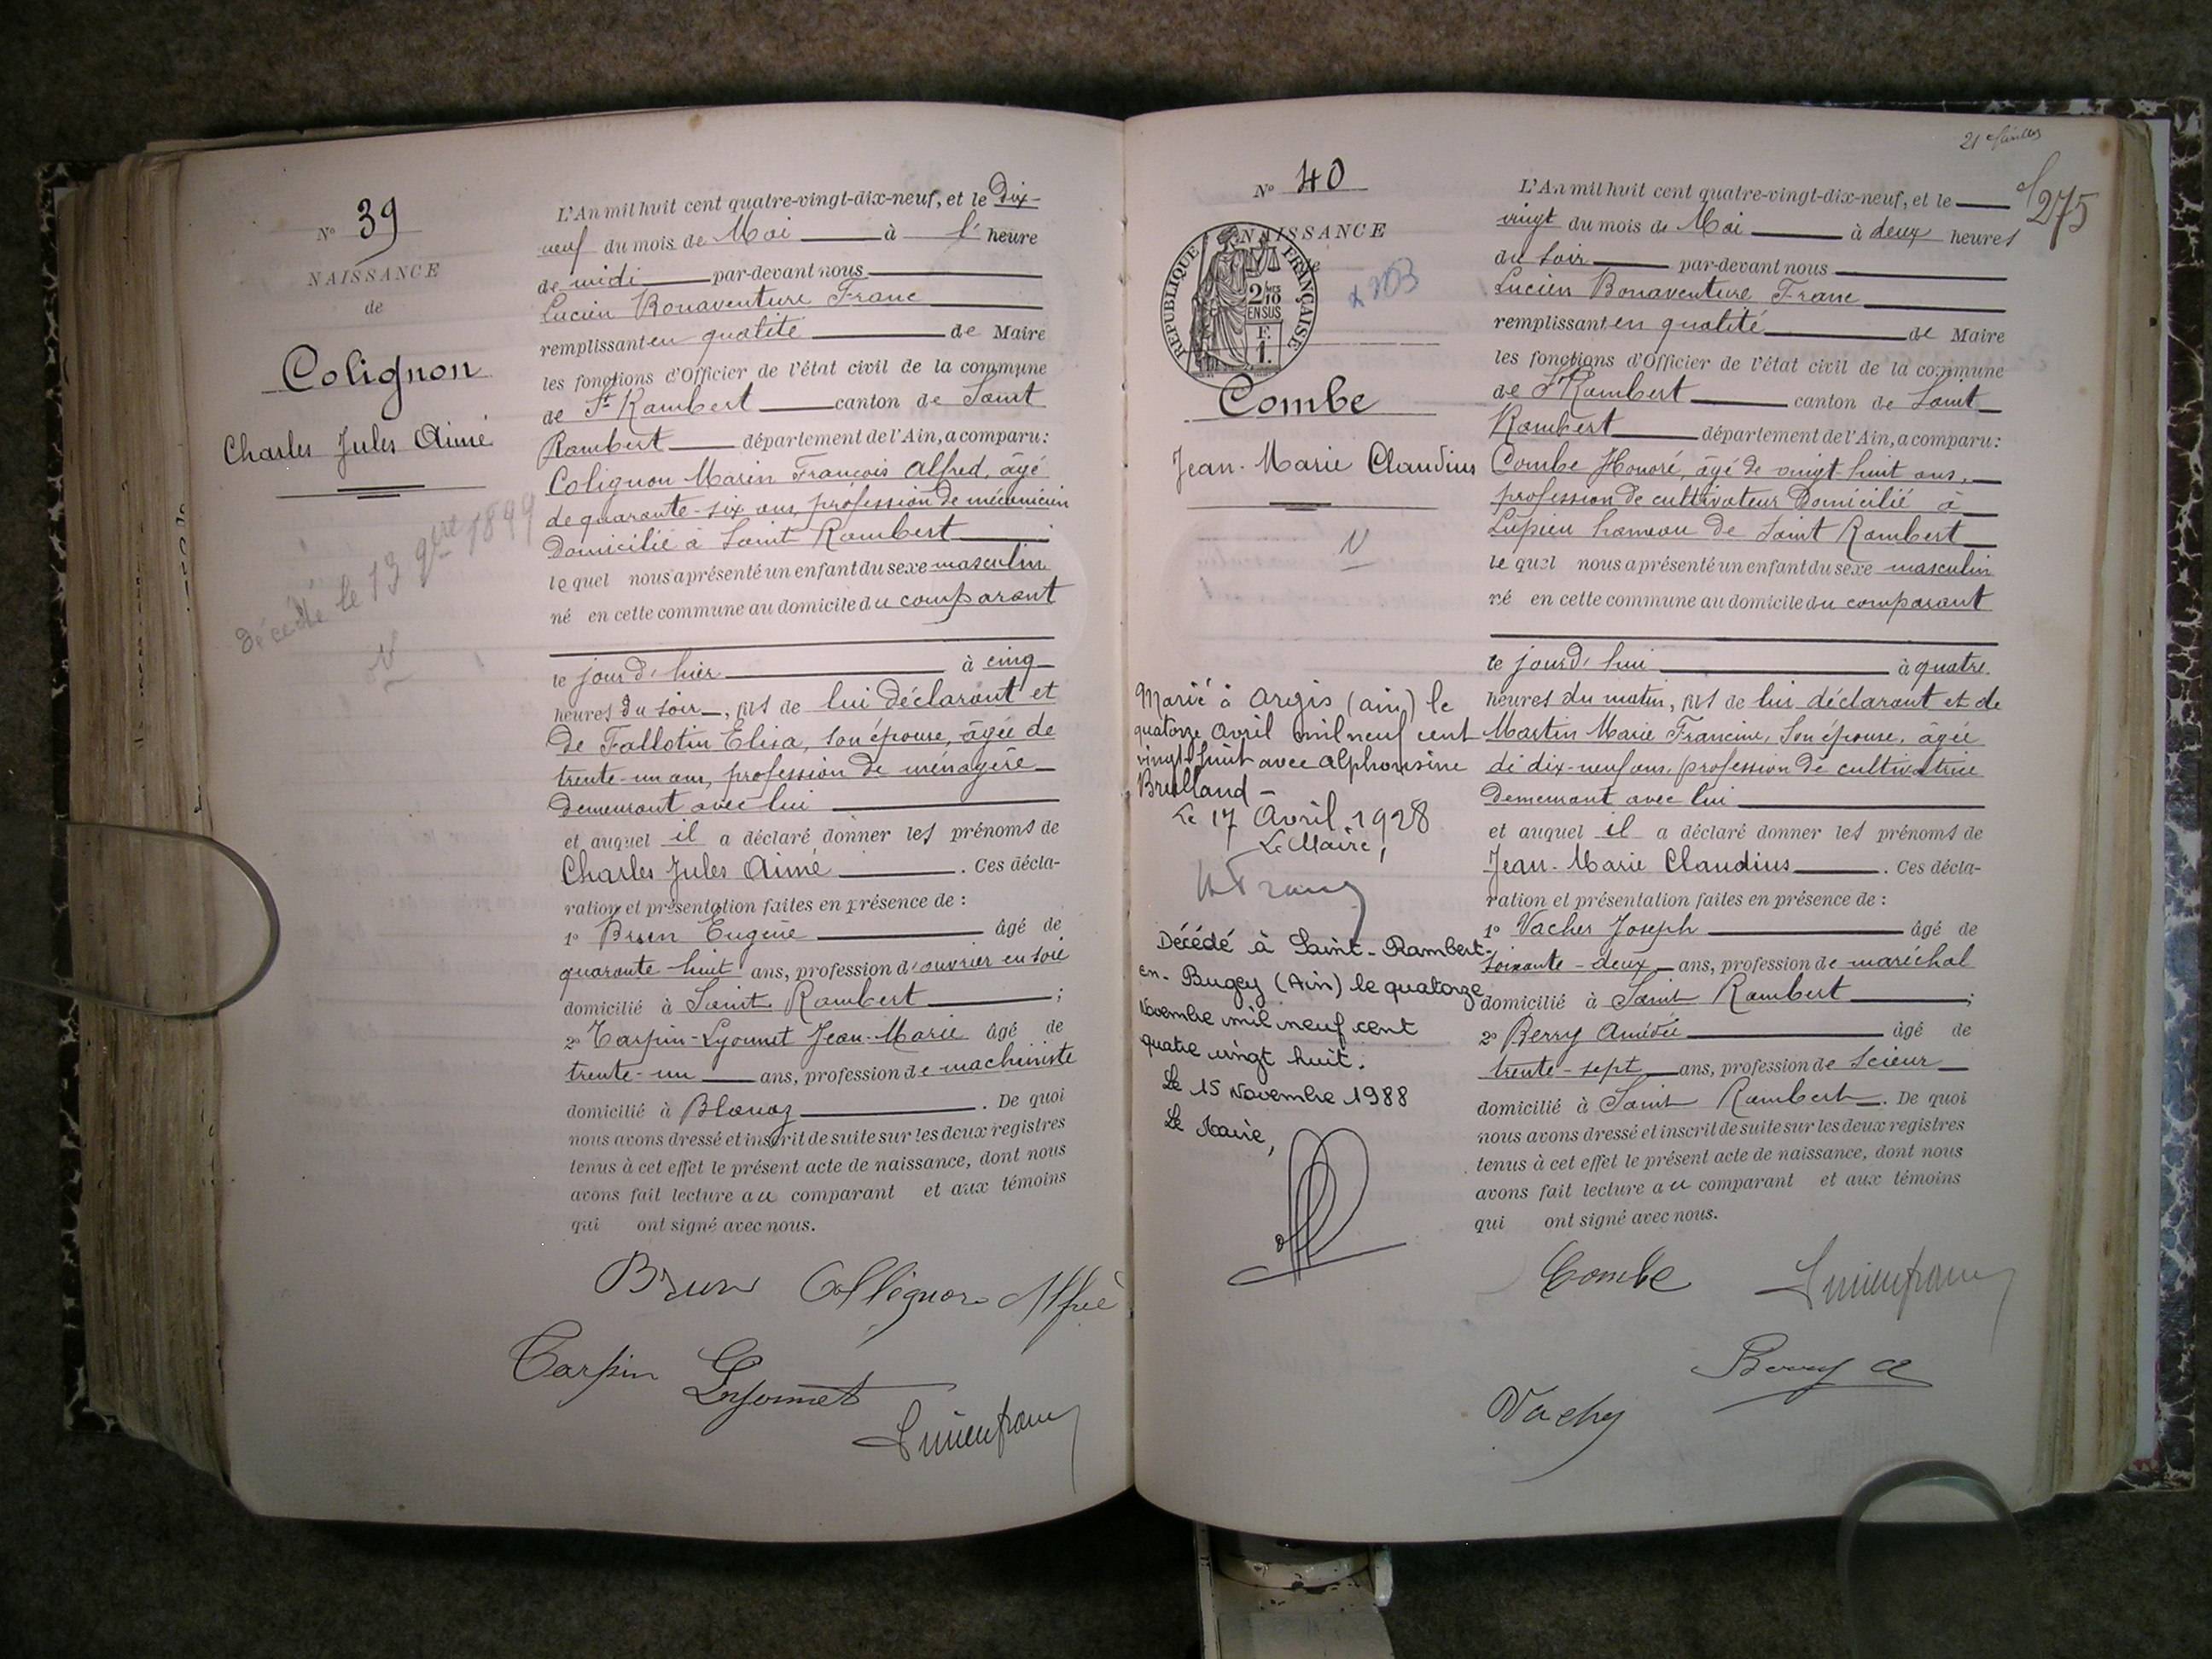 N° 39
NAISSANCE
de
Colignon
Charles Jules Aimé
Décédé le 13 9bre 1899
N
L'An mil huit cent quatre-vingt-dix-neuf, et le dix-
neuf du mois de Mai à l' heure
de midi par-devant nous
Lucien Bonaventure Franc
remplissant en qualité de Maire
les fonctions d'Officier de l'état civil de la commune
de St Rambert canton de Saint
Rambert département de l'Ain, a comparu:
Colignon Marin François Alfred, âgé
de quarante-six ans, profession de mécanicien
Domicilié à Saint Rambert
lequel nous a présenté un enfant du sexe masculin
né en cette commune au domicile du comparant
le jour d'hier à cinq
heures du soir, fils de lui déclarant et
de Fallotin Elisa, son épouse, âgée de
trente-un ans, profession de ménagère
demeurant avec lui
et auquel il a déclaré donner les prénoms de
Charles Jules Aimé. Ces décla-
ration et présentation faites en présence de :
1° Brun Eugène âgé de
quarante-huit ans, profession d'ouvrier en soie
domicilié à Saint Rambert ;
2° Carpin-Lyonnet Jean-Marie âgé de
trente-un ans, profession de machiniste
domicilié à Blanaz. De quoi
nous avons dressé et inscrit de suite sur les deux registres
tenus à cet effet le présent acte de naissance, dont nous
avons fait lecture au comparant et aux témoins
qui ont signé avec nous.
Brun Collignon Alfred
Carpin Lyonnet
Lucien franc
21
275
N° 40
NAISSANCE
de
REPUBLIQUE FRANÇAISE
2/10 EN SUS
F. 1.
Combe
Jean-Marie Claudius
N
Marié à Argis (ain) le
quatorze Avril mil neuf cent
vingt-huit avec Alphonsine
Brulland -
Le 17 Avril 1928
Le Maire,
Décédé à Saint-Rambert-
en-Bugey (Ain) le quatorze
Novembre mil neuf cent
quatre vingt huit.
Le 15 Novembre 1988
Le Maire,
L'An mil huit cent quatre-vingt-dix-neuf, et le
vingt du mois de Mai à deux heures
du soir par-devant nous
Lucien Bonaventure Franc
remplissant en qualité de Maire
les fonctions d'Officier de l'état civil de la commune
de St Rambert canton de Saint
Rambert département de l'Ain, a comparu:
Combe Honoré, âgé de vingt-huit ans,
profession de cultivateur Domicilié à
Lupieu hameau de Saint Rambert
lequel nous a présenté un enfant du sexe masculin
né en cette commune au domicile du comparant
le jourd'hui à quatre
heures du matin, fils de lui déclarant et de
Martin Marie Francine, son épouse, âgée
de dix-neuf ans, profession de cultivatrice
demeurant avec lui
et auquel il a déclaré donner les prénoms de
Jean-Marie Claudius. Ces décla-
ration et présentation faites en présence de :
1° Vacher Joseph âgé de
soixante-deux ans, profession de maréchal
domicilié à Saint Rambert ;
2° Berry Amédée âgé de
trente-sept ans, profession de scieur
domicilié à Saint Rambert. De quoi
nous avons dressé et inscrit de suite sur les deux registres
tenus à cet effet le présent acte de naissance, dont nous
avons fait lecture au comparant et aux témoins
qui ont signé avec nous.
Combe Lucien franc
Berry A